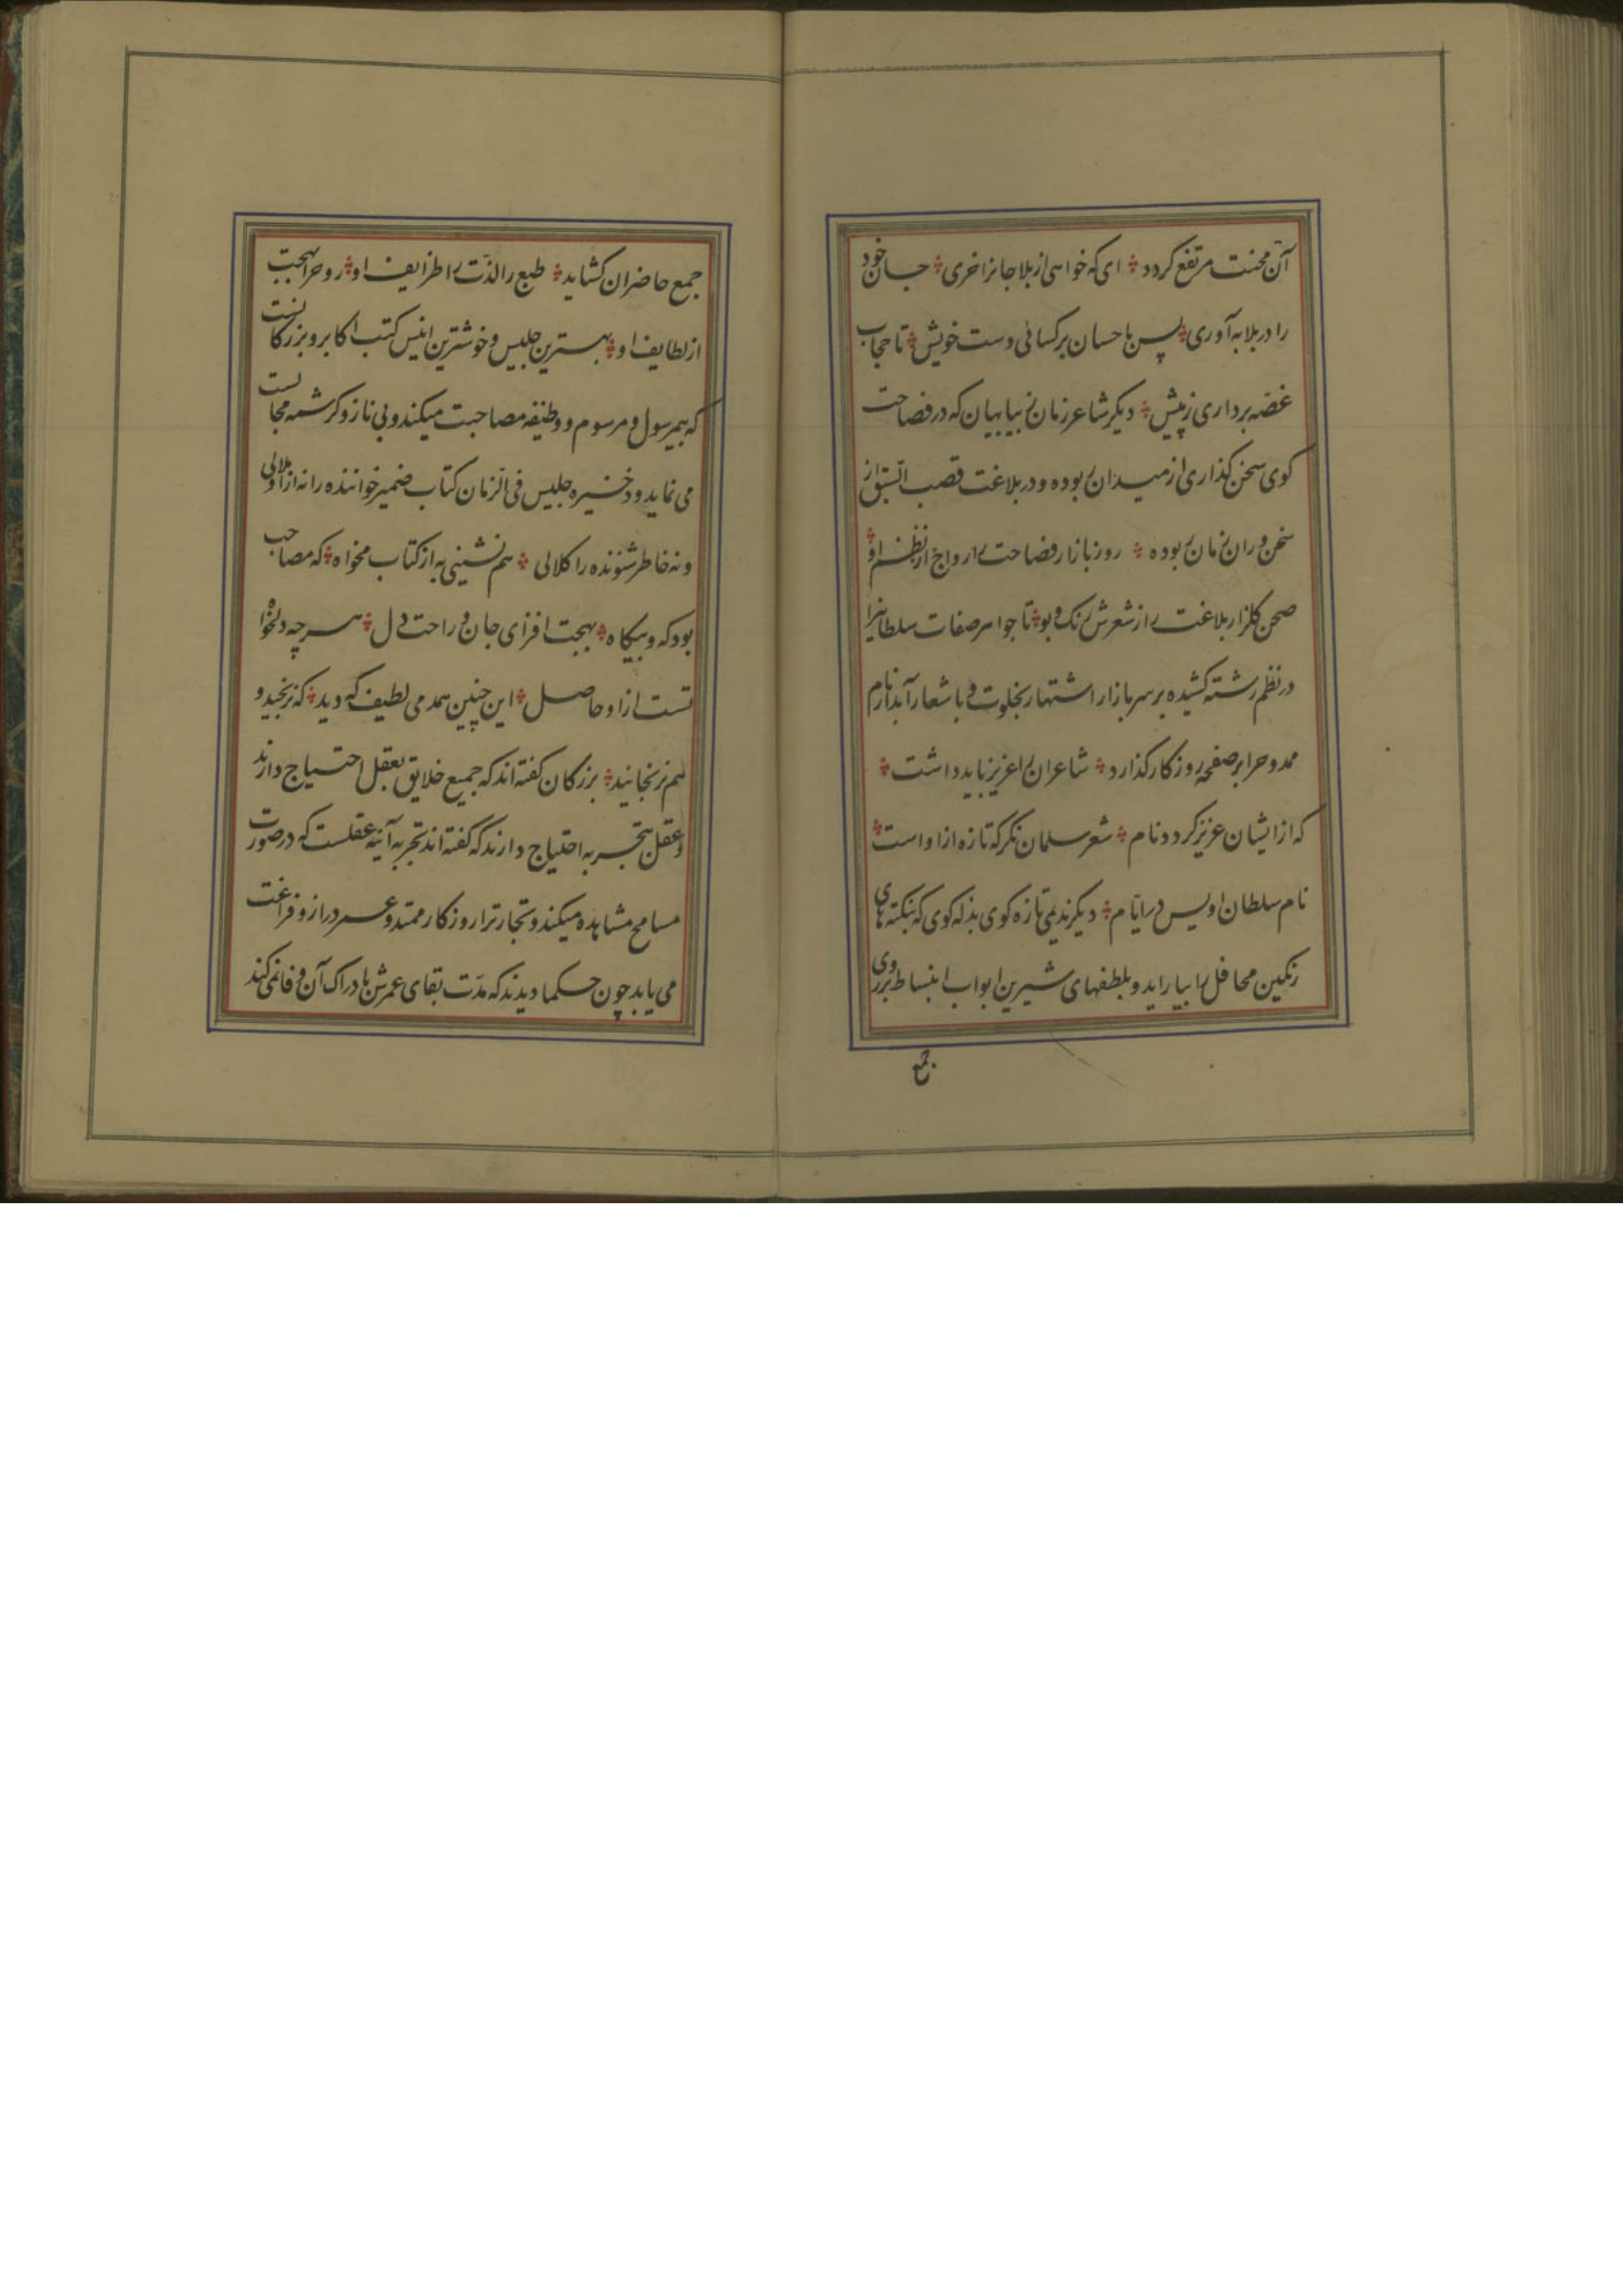 آن محنت مرتفع کردد ؞ ای که خواهی از بلا جانرا خری ؞ جان خود
را در بلا به آوری ؞ پس باحسان برکسائی دست خویش ؞ تا حجاب
غصّه برداری زپیش ؞ دیکر شاعر زمان بیابیان که در فصاحت
کوی سخن کذاری از میدان بوده و در بلاغت قصب السّبق از
سخن وران زمان بوده ؞ روز بازار فصاحت را رواج از نظم او ؞
صحن کلزار بلاغت را از شعرش رنک و بو ؞ تا جواهر صفات سلطانیرا
در نظم رشته کشیده بر سر بازار اشتهار بخلوت و باشعار آبدار نام
ممدوحرا بر صفحه روزکار کذارد ؞ شاعران را عزیز باید داشت ؞
که از ایشان عزیز کردد نام ؞ شعر سلمان نکر که تازه ازاو است ؞
نام سلطان اویس در ایّام ؞ دیکر ندیمی تازه کوی بذله کوی که بنکته های
رنکین محافل را بیاراید و بلطفهای شیرین ابواب انبساط بر روی
جمع
جمع حاضران کشاید ؞ طبع را لذّت را طرایف او ؞ روحرا بهجت
از لطایف او ؞ بهترین جلیس و خوشترین انیس کتب اکابر و بزرکانست
که بیرسول و مرسوم و وظیفه مصاحبت میکند و بی ناز و کرشمه مجالست
می نماید و خیر جلیس فی الزمان کتاب ضمیر خواننده را نه ازاو ملالی
و نه خاطر شنونده را کلالی ؞ هم نشینی به از کتاب مخواه ؞ که مصاحب
بود که و بیکاه ؞ بهجت افزای جان و راحت دل ؞ هرچه دلخواه
تست ازاو حاصل ؞ این چنین همدمی لطیف که دید ؞ که نرنجید و
هم نرنجانید ؞ بزرکان کفته اند که جمیع خلایق بعقل احتیاج دارند
و عقل بتجربه احتیاج دارند که کفته اند تجربه آینه عقلست که در صورت
مسامح مشاهده میکند و تجارت را روزکار ممتد و عمر دراز و فراغت
می یابد چون حکما دیدند که مدّت بقای عمرش بادراک آن وفا نمی کند